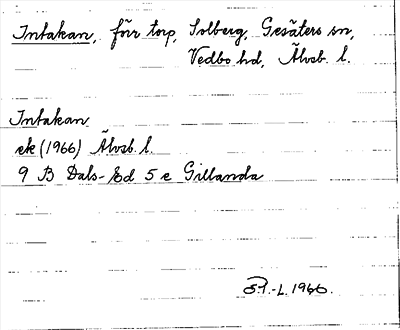 Intakan, förr torp, Solberg, Gesäters sn,
Vedbo hd, Älvsb. l.
Intakan
ek (1966) Älvsb. l.
9 B Dals-Ed 5 e Gillanda
1966.